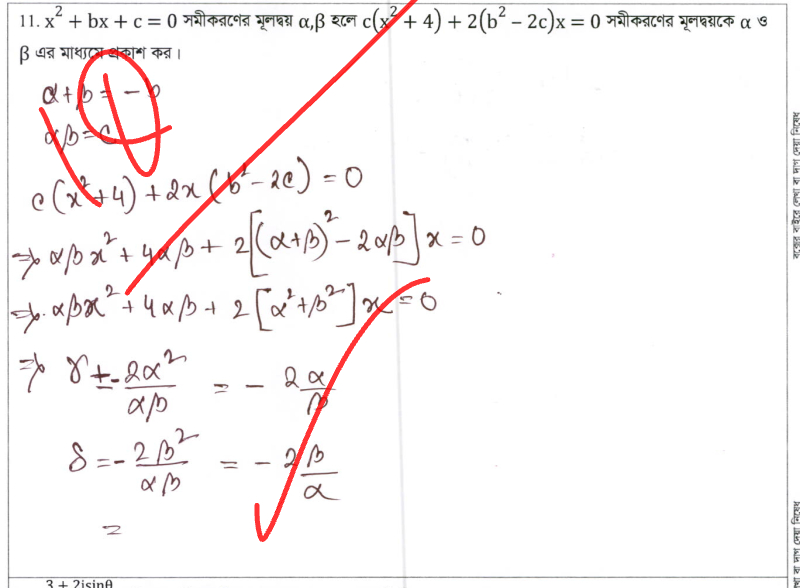 11. x² + bx + c = 0 সমীকরণের মূলদ্বয় α,β হলে c(x² + 4) + 2(b² − 2c)x = 0 সমীকরণের মূলদ্বয়কে α ও
β এর মাধ্যমে প্রকাশ কর।
α+β = − b
αβ = c
c(x²+4) + 2x(b²−2c) = 0
⇒ αβx² + 4αβ + 2[(α+β)² − 2αβ]x = 0
⇒ αβx² + 4αβ + 2[α²+β²]x = 0
⇒ γ = − 2α²/αβ = − 2α/β
δ = − 2β²/αβ = − 2β/α
=
3 + 2isinθ